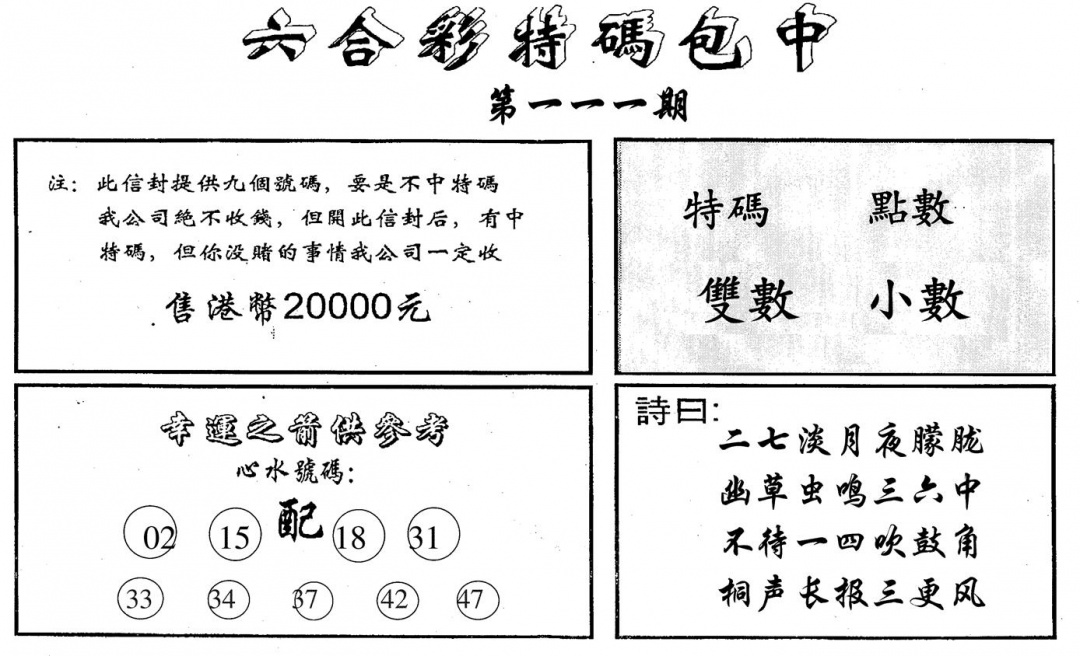 六合彩特碼包中
第一一一期
注：此信封提供九個號碼，要是不中特碼
我公司絕不收錢，但開此信封后，有中
特碼，但你没賭的事情我公司一定收
售港幣20000元
特碼 點數
雙數 小數
幸運之箭供參考
心水號碼：
配
02 15 18 31
33 34 37 42 47
詩曰：
二七淡月夜朦胧
幽草虫鸣三六中
不待一四吹鼓角
桐声长报三更风